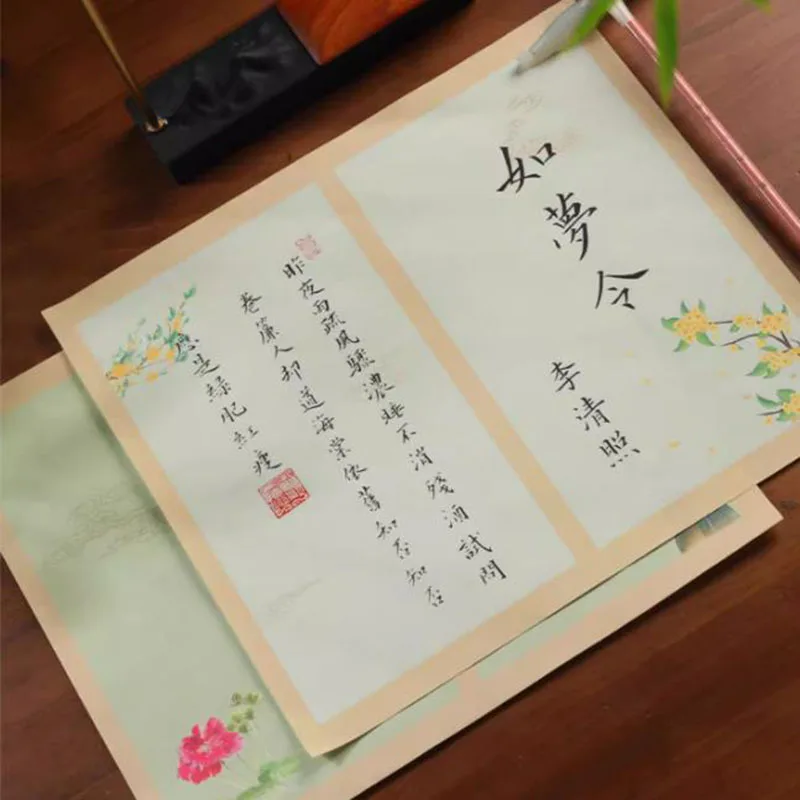 如夢令
李清照
昨夜雨疏風驟濃睡不消殘酒試問
卷簾人却道海棠依舊知否知否
應是綠肥紅瘦